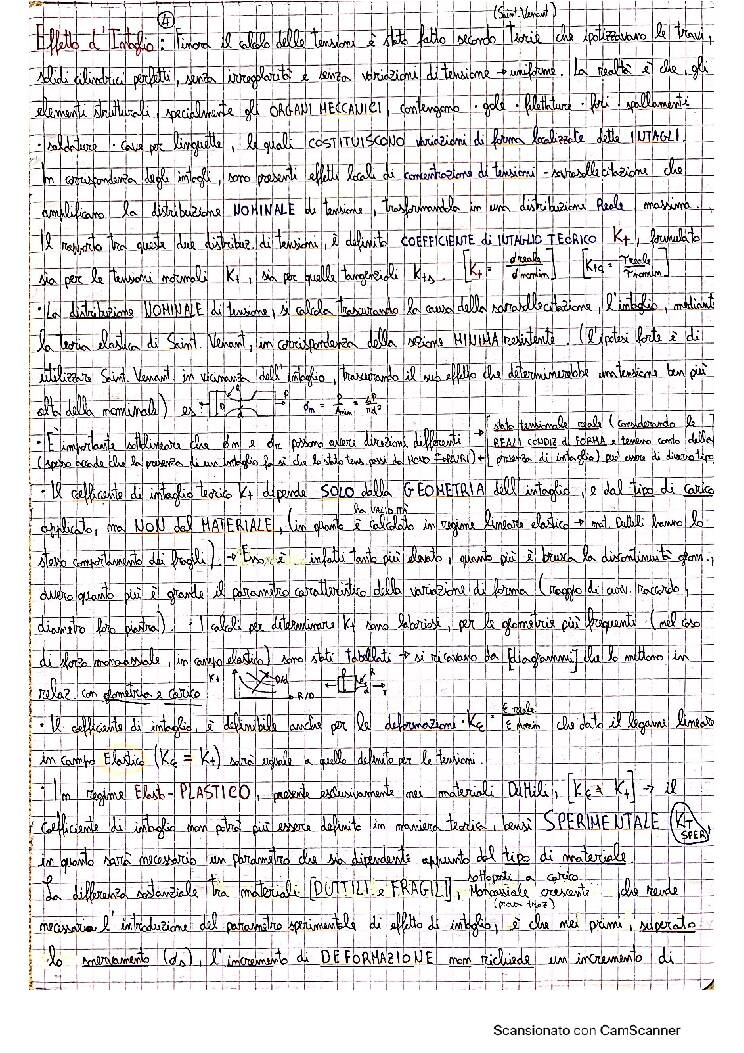 (Saint. Venant)
4
Effetto d'Intaglio: Finora il calcolo delle tensioni è stato fatto secondo Teorie che ipotizzavano le travi,
solidi cilindrici perfetti, senza irregolarità e senza variazioni di tensione → uniforme. La realtà è che, gli
elementi strutturali, specialmente gli ORGANI MECCANICI, contengono · gole · filettature · fori · spallamenti
· saldature · cave per linguette, le quali COSTITUISCONO variazioni di forma localizzate dette INTAGLI.
In corrispondenza degli intagli, sono presenti effetti locali di concentrazione di tensioni - sovrasollecitazione che
amplificano la distribuzione NOMINALE di tensione, trasformandola in una distribuzione Reale massima.
Il rapporto tra queste due distribuz. di tensioni, è definito COEFFICIENTE di INTAGLIO TEORICO Kt, formulato
sia per le tensioni normali Kt, sia per quelle tangenziali Kts. [Kt = σreale / σnomin] [Ktσ = τreale / τnomin]
· La distribuzione NOMINALE di tensione, si calcola trascurando la causa della sovrasollecitazione, l'intaglio, mediante
la teoria elastica di Saint. Venant, in corrispondenza della sezione MINIMA resistente. (l'ipotesi forte è di
utilizzare Saint. Venant in vicinanza dell'intaglio, trascurando il suo effetto che determinerebbe una tensione ben più
alta della nominale) es: D d P σm = P / Amin = 4P / πd²
· È importante sottolineare che σn e σr possono avere direzioni differenti → [stato tensionale reale (considerando le
REALI CONDIZ di FORMA e tenendo conto della
(spesso accade che la presenza di un intaglio fa sì che lo stato tens. passi da MONO a [presenza di intaglio) può essere di diverso tipo
· Il coefficiente di intaglio teorico Kt dipende SOLO dalla GEOMETRIA dell'intaglio, e dal tipo di carico
applicato, ma NON dal MATERIALE, (in quanto è calcolato in regime lineare elastico → mat. Duttili hanno lo
stesso comportamento dei fragili). → Esso è infatti tanto più elevato, quanto più è brusca la discontinuità geom.,
ovvero quanto più è grande il parametro caratteristico della variazione di forma (raggio di curv. raccordo,
diametro foro piastra). · I calcoli per determinare Kt sono laboriosi, per le geometrie più frequenti (nel caso
di forza monoassiale, in campo elastico) sono stati tabellati → si ricavano da [diagrammi] che lo mettono in
relaz. con geometria e carico Kt D/d R/D
· Il coefficiente di intaglio, è definibile anche per le deformazioni · Kε = ε reale / ε nomin che dato il legame lineare
in campo Elastico (Kε = Kt) sarà uguale a quello definito per le tensioni.
· In regime Elast-PLASTICO, presente esclusivamente nei materiali Duttili, [Kε ≠ Kt] → il
coefficiente di intaglio non potrà più essere definito in maniera teorica, bensì SPERIMENTALE (KT SPER)
in quanto sarà necessario un parametro che sia dipendente appunto dal tipo di materiale.
La differenza sostanziale tra materiali [DUTTILI e FRAGILI], sottoposti a carico Monoassiale crescente (prova traz), che rende
necessaria l'introduzione del parametro sperimentale di effetto di intaglio, è che nei primi, superato
lo snervamento (σs), l'incremento di DEFORMAZIONE non richiede un incremento di
Scansionato con CamScanner